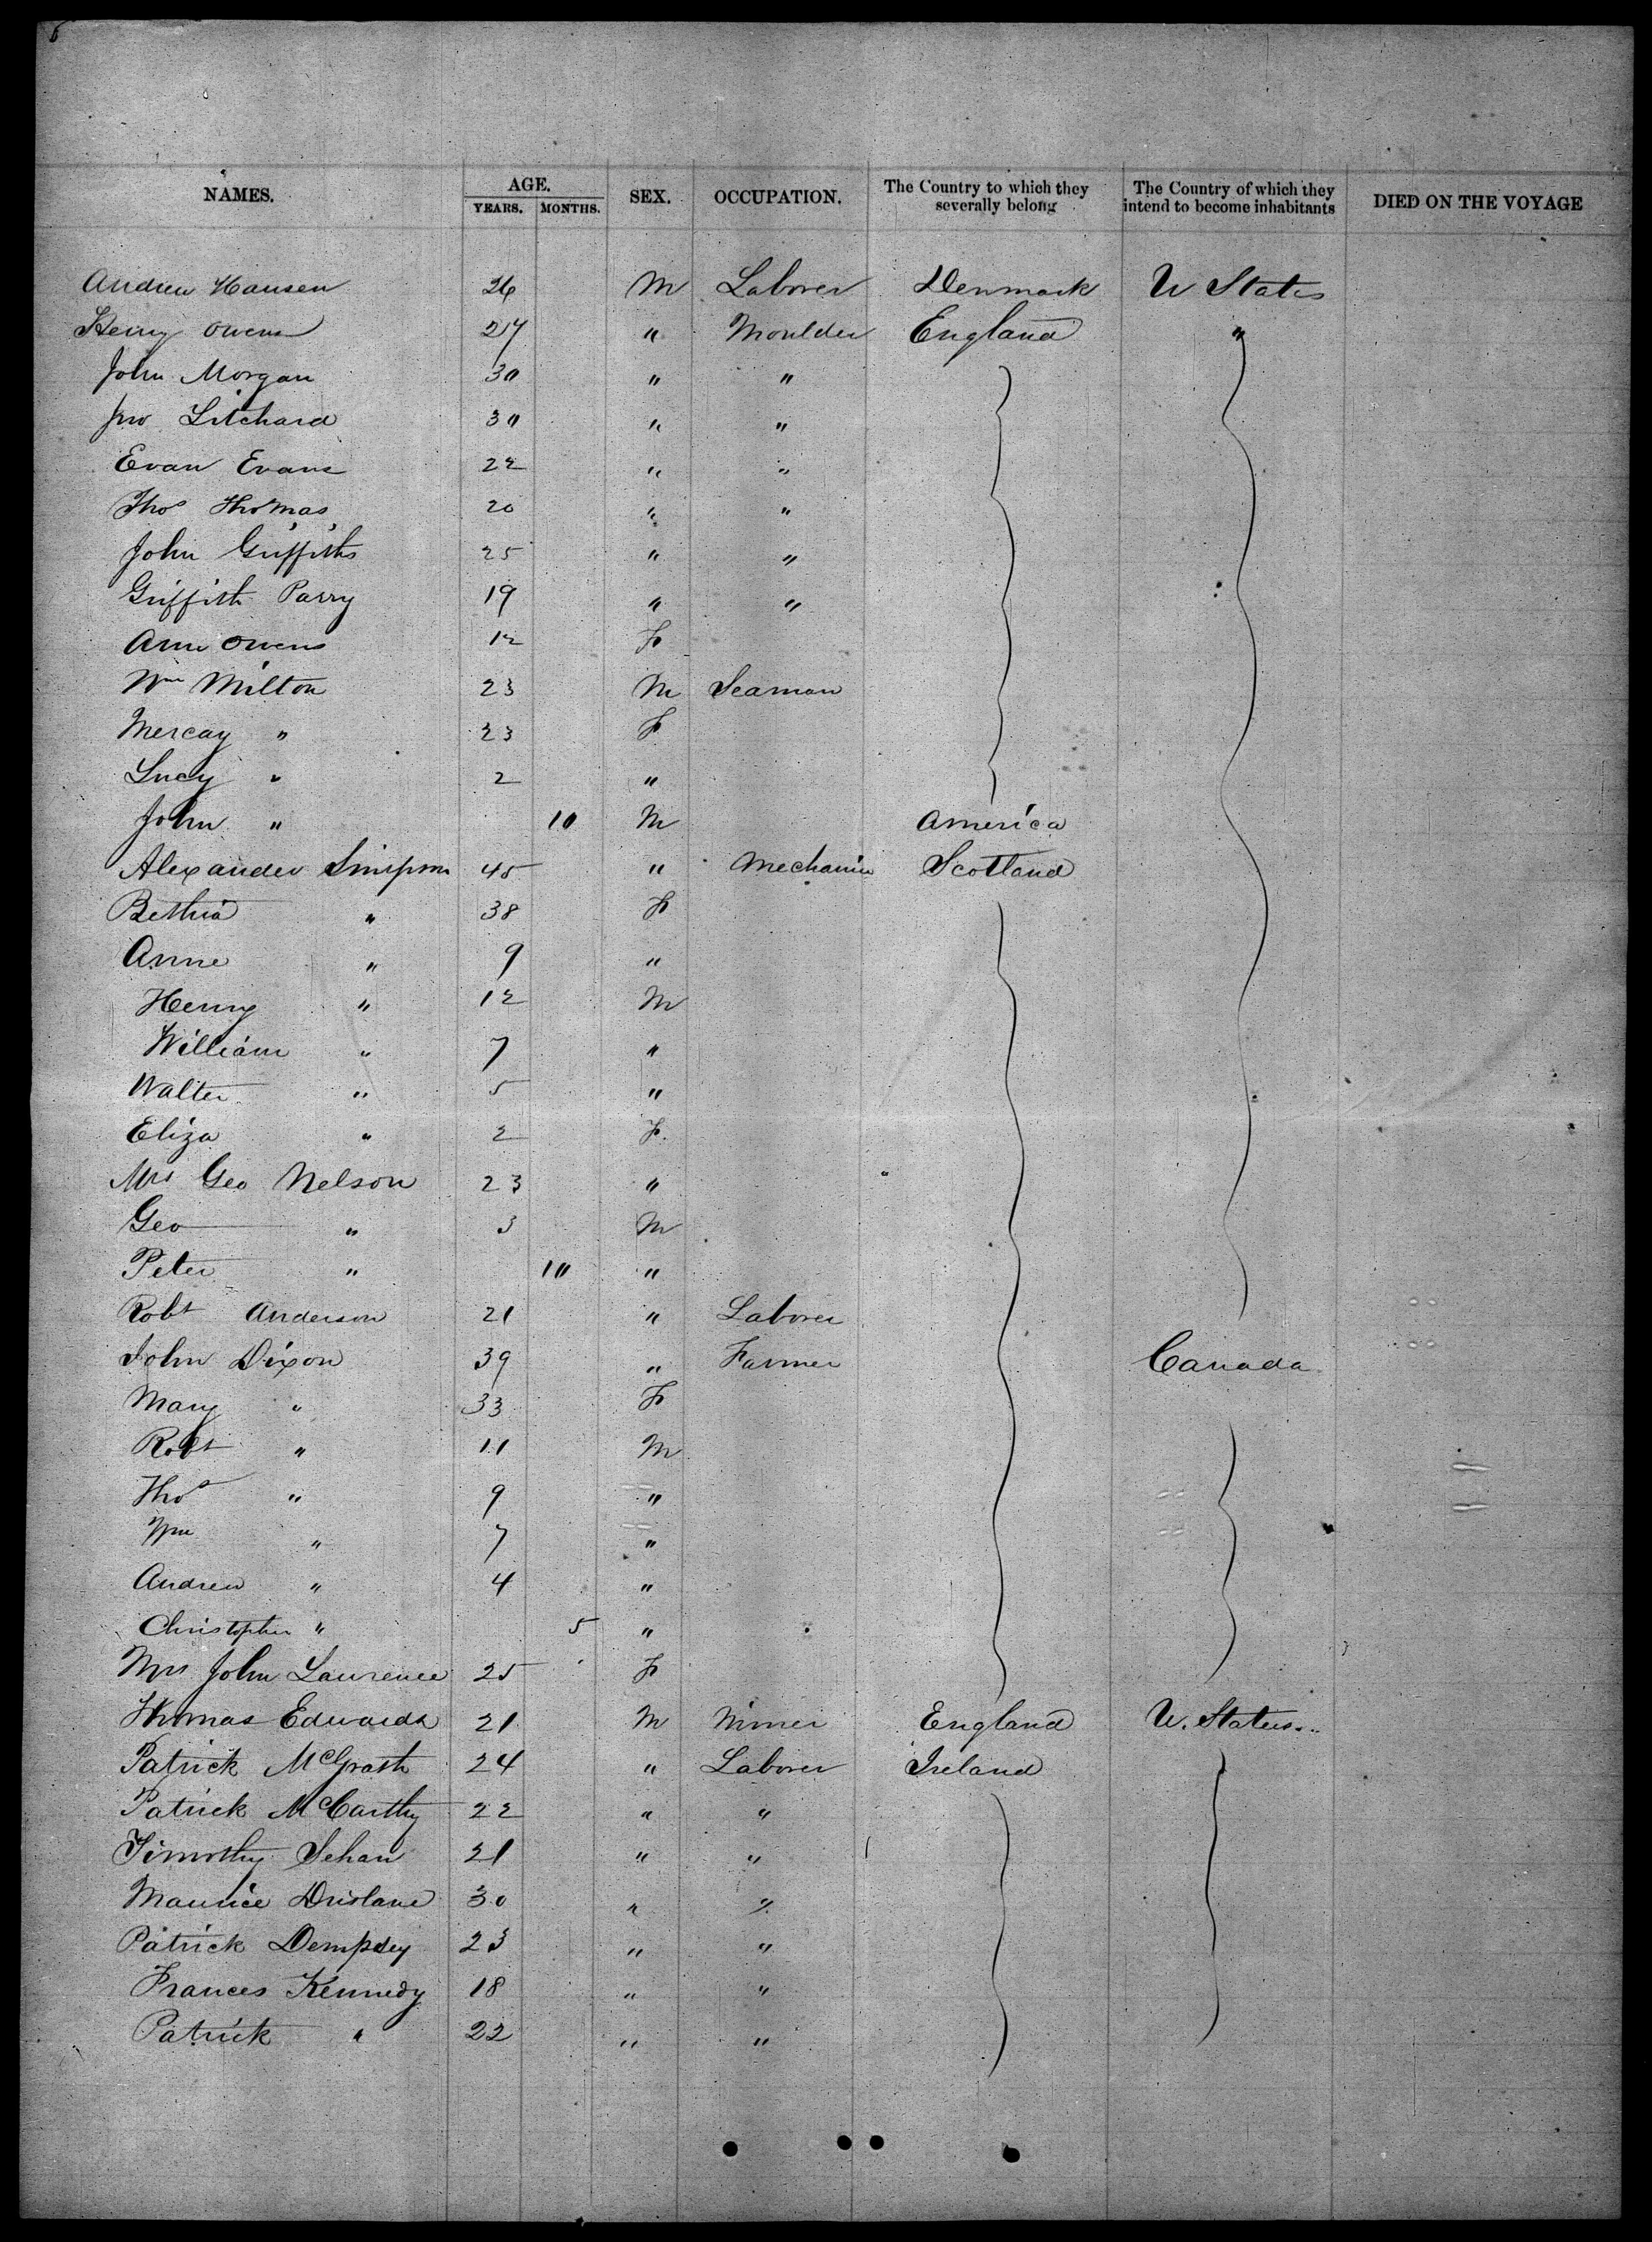 6
NAMES. AGE. SEX. OCCUPATION. The Country to which they severally belong The Country of which they intend to become inhabitants DIED ON THE VOYAGE
YEARS. MONTHS.
Andrew Hansen 26 M Laborer Denmark U States
Henry Owens 24 " Moulder England "
John Morgan 30 " "
Jno Litchard 30 " "
Evan Evans 22 " "
Thos Thomas 20 " "
John Griffiths 25 " "
Griffith Parry 19 " "
Ann Owens 12 F
Wm Milton 23 M Seaman
Mercay " 23 F
Lucy " 2 "
John " 10 M America
Alexander Simpson 45 " Mechanic Scotland
Bethia " 38 F
Anne " 9 "
Henry " 12 M
William " 7 "
Walter " 5 "
Eliza " 2 F.
Mrs Geo Nelson 23 "
Geo " 3 M
Peter " 10 "
Robt Anderson 21 " Laborer
John Dixon 39 " Farmer Canada
Mary " 33 F
Robt " 11 M
Thos " 9 "
Wm " 7 "
Andrew " 4 "
Christopher " 5 "
Mrs John Laurence 25 F
Thomas Edwards 21 M Miner England U. States
Patrick McGrath 24 " Laborer Ireland
Patrick McCarthy 22 " "
Timothy Sehan 21 " "
Maurice Drislane 30 " "
Patrick Dempsey 23 " "
Frances Kennedy 18 " "
Patrick " 22 " "